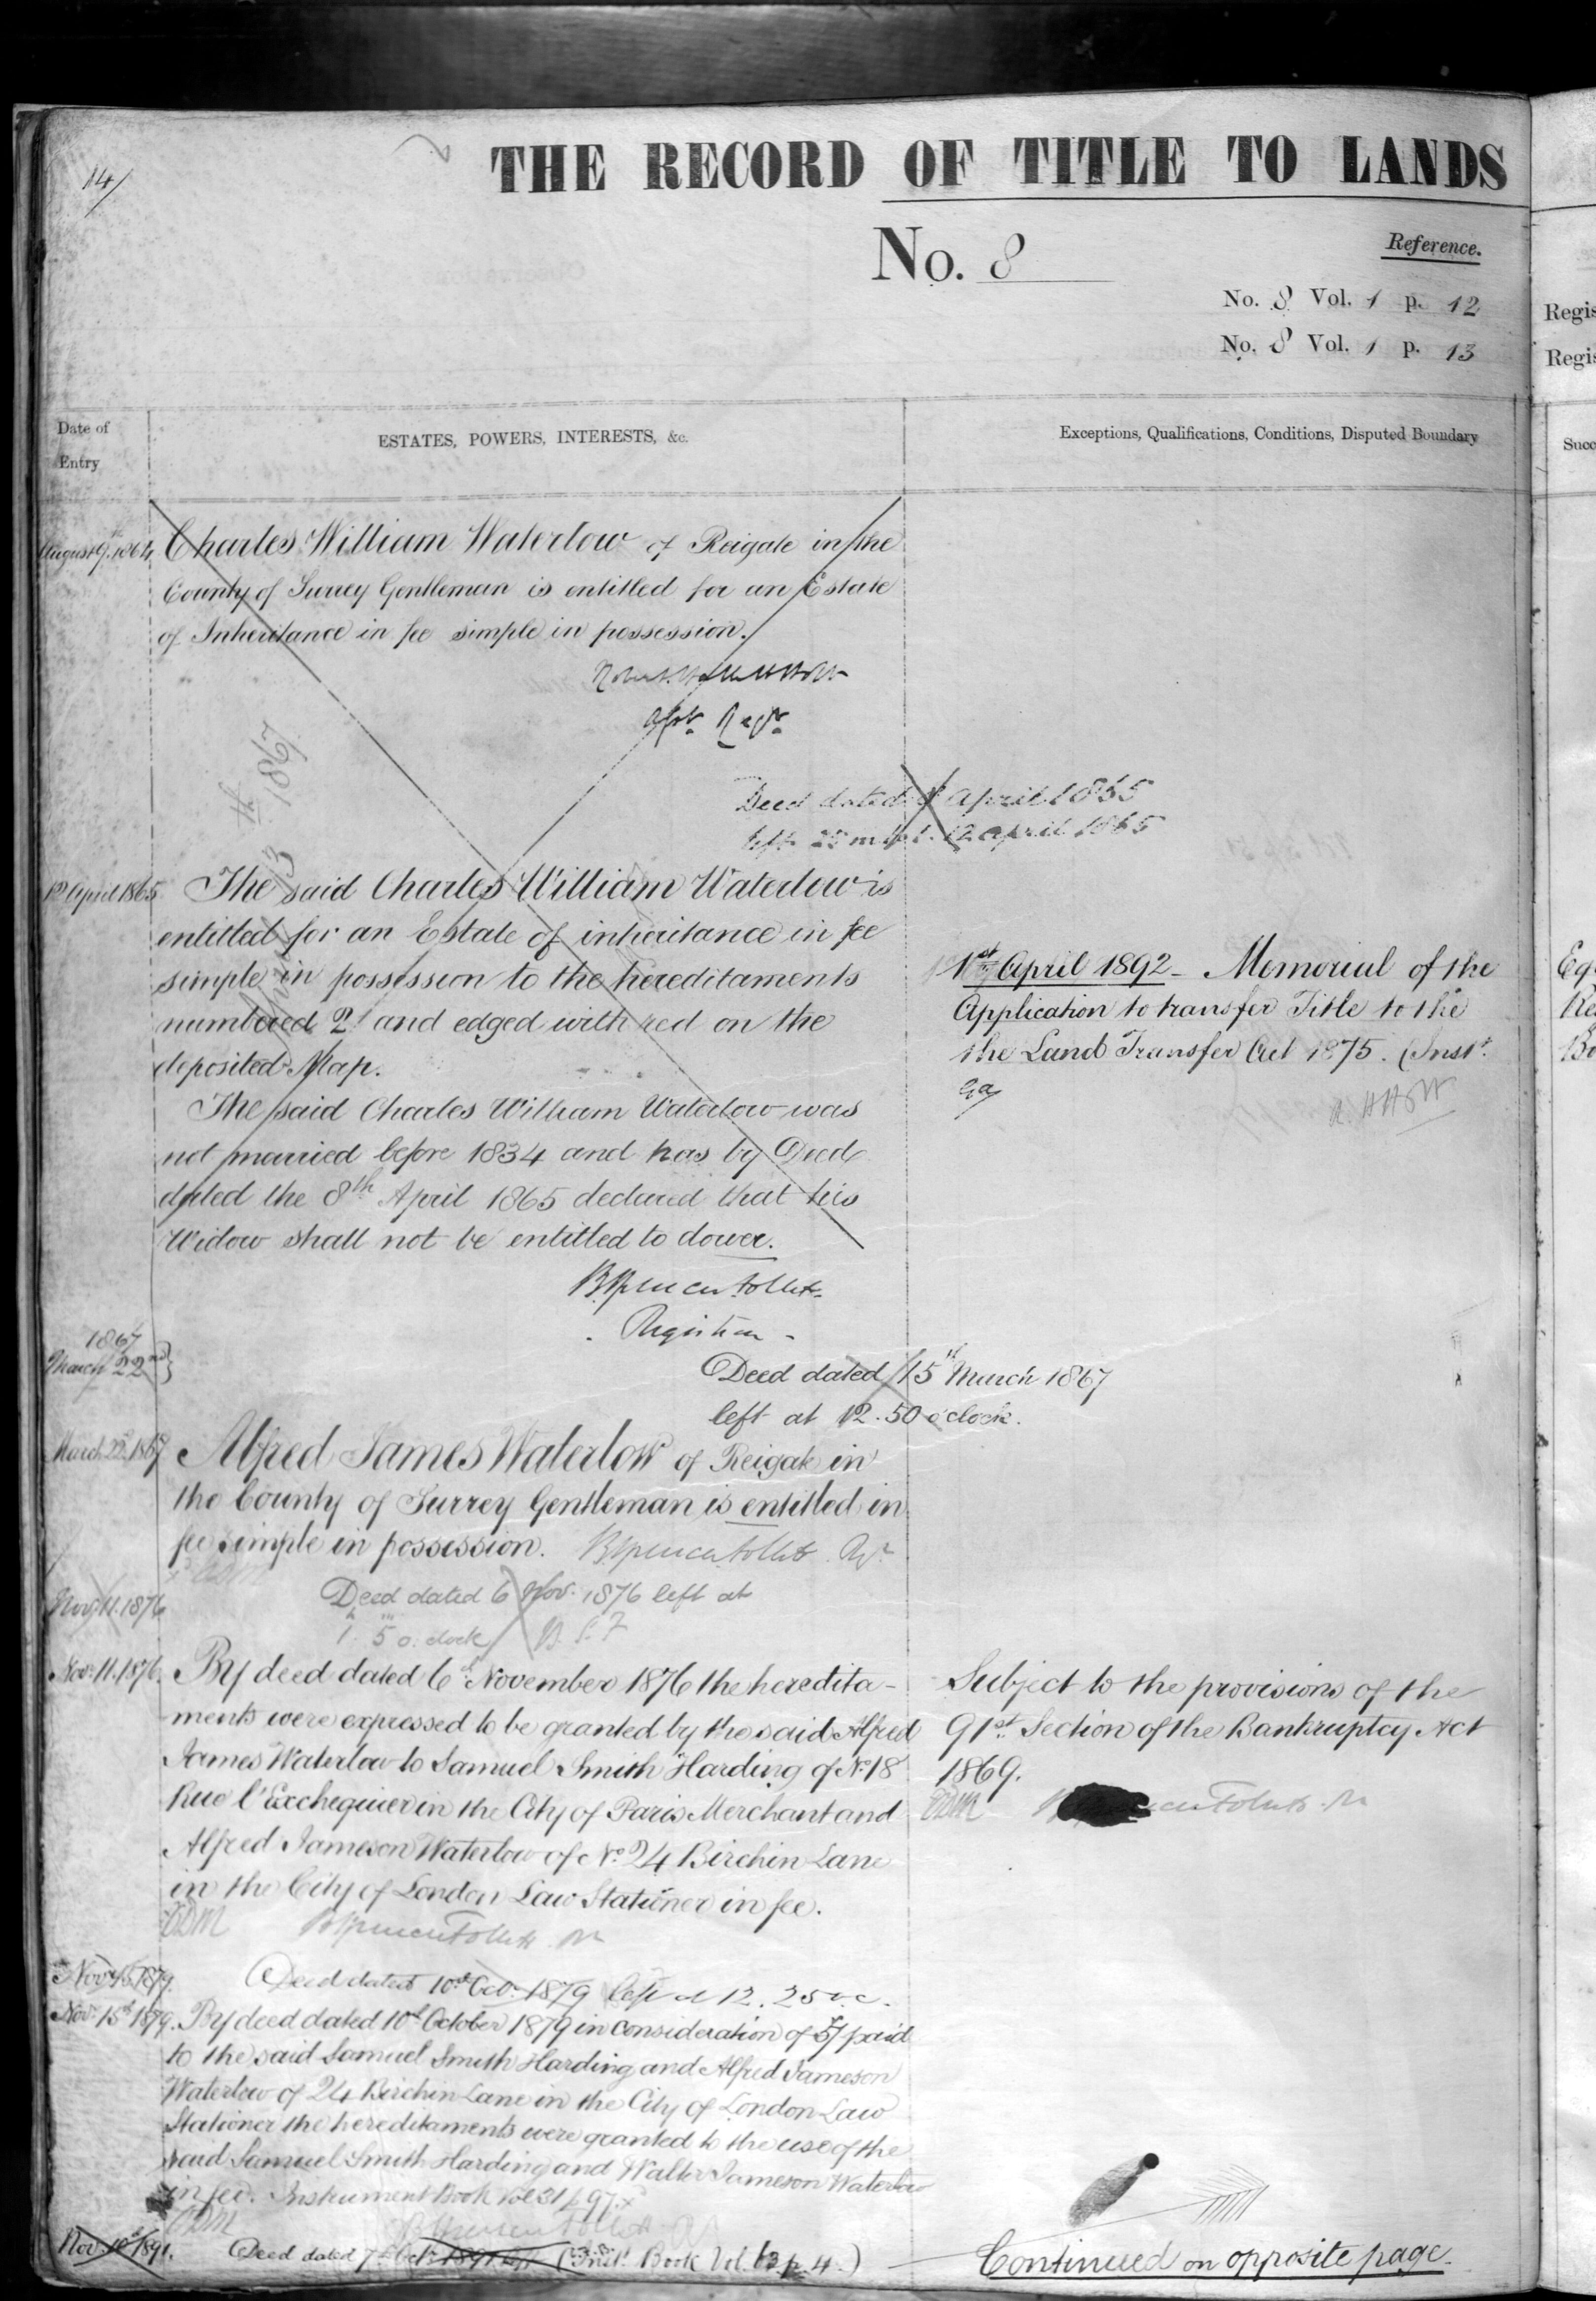 14
THE RECORD OF TITLE TO LANDS
No. 8
Reference.
No. 8 Vol. 1 p. 12
No. 8 Vol. 1 p. 13
Regis
Regis
Date of
Entry
ESTATES, POWERS, INTERESTS, &c.
Exceptions, Qualifications, Conditions, Disputed Boundary
Succ
August 9th 1864
Charles William Waterlow of Reigate in the
County of Surrey Gentleman is entitled for an Estate
of Inheritance in fee simple in possession.
Asst. Regr.
1867
Deed dated 8 April 1865
left 12 April 1865
12 April 1865
The said Charles William Waterlow is
entitled for an Estate of inheritance in fee
simple in possession to the hereditaments
numbered 2 and edged with red on the
deposited Map.
The said Charles William Waterlow was
not married before 1834 and has by Deed
dated the 8th April 1865 declared that his
Widow shall not be entitled to dower.
Registrar
1st April 1892 - Memorial of the
Application to transfer Title to the
the Land Transfer Act 1875. (Inst.
1867
March 22nd
Deed dated 15th March 1867
left at 12.50 o'clock.
March 22nd 1867
Alfred James Waterlow of Reigate in
the County of Surrey Gentleman is entitled in
fee simple in possession.
Nov. 11. 1876
Deed dated 6 Nov. 1876 left at
1. 5 o.clock B.S.F
Nov. 11. 1876.
By deed dated 6th November 1876 the heredita-
ments were expressed to be granted by the said Alfred
James Waterlow to Samuel Smith Harding of No. 18
Rue l'Exchequier in the City of Paris Merchant and
Alfred Jameson Waterlow of No. 24 Birchin Lane
in the City of London Law Stationer in fee.
EDM
Subject to the provisions of the
91st Section of the Bankruptcy Act
1869.
EDM
Nov. 15. 1879.
Deed dated 10th Oct. 1879 left at 12.25 o.c.
Nov. 15th 1879.
By deed dated 10th October 1879 in consideration of 5/ paid
to the said Samuel Smith Harding and Alfred Jameson
Waterlow of 24 Birchin Lane in the City of London Law
Stationer the hereditaments were granted to the use of the
said Samuel Smith Harding and Walter Jameson Waterlow
in fee. Instrument Book Vol 31 p 97.
EDM
Nov. 10th 1891.
Deed dated 7th Oct. 1891 left (Inst. Book Vol. 63 p. 4.)
Continued on opposite page.